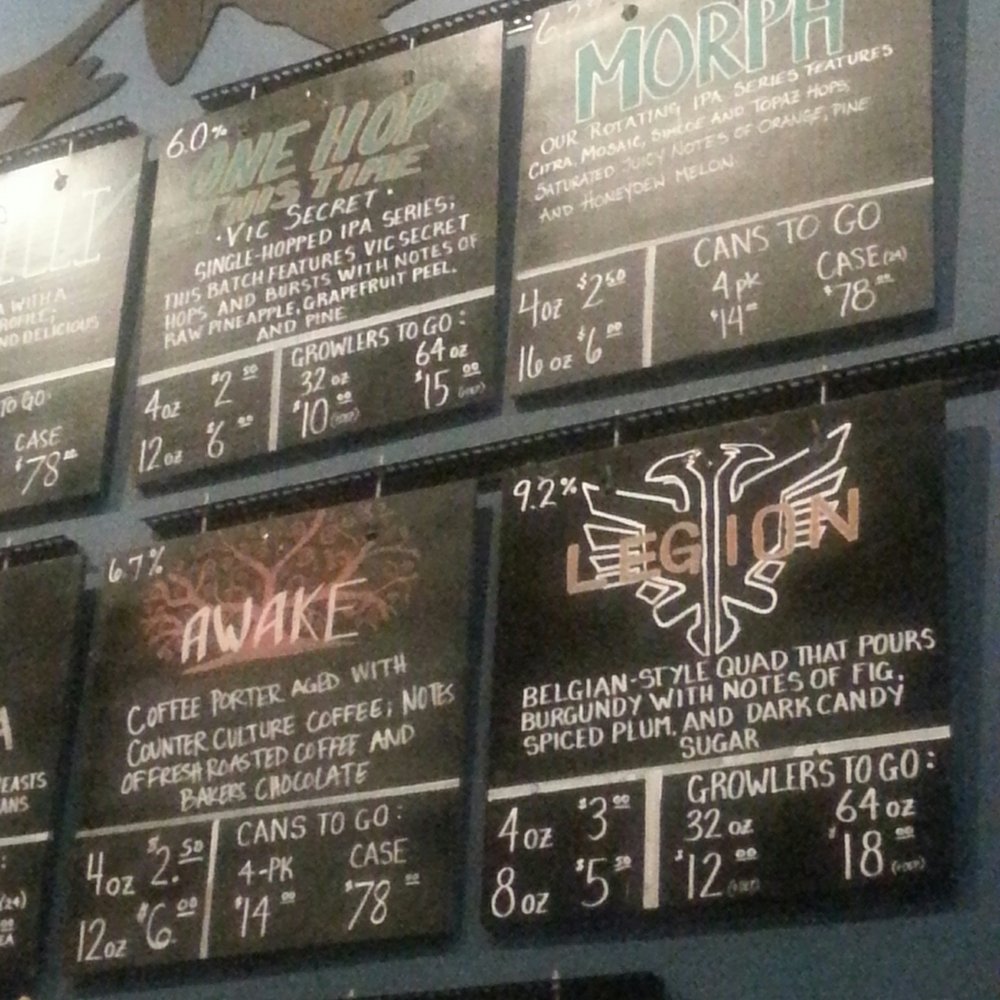 A WITH A
ROFILE;
ND DELICIOUS
TO GO:
CASE
$78
6.0%
ONE HOP
THIS TIME
·VIC SECRET·
SINGLE-HOPPED IPA SERIES;
THIS BATCH FEATURES VIC SECRET
HOPS AND BURSTS WITH NOTES OF
RAW PINEAPPLE, GRAPEFRUIT PEEL,
AND PINE
4oz $2.50
12oz $6.00
GROWLERS TO GO:
32 oz 64 oz
$10.00 $15.00
MORPH
OUR ROTATING IPA SERIES FEATURES
CITRA, MOSAIC, SIMCOE AND TOPAZ HOPS,
SATURATED JUICY NOTES OF ORANGE, PINE
AND HONEYDEW MELON
4oz $2.50
16 oz $6.00
CANS TO GO
4pk CASE(24)
$14 $78
EASTS
ANS
(24)
EA
6.7%
AWAKE
COFFEE PORTER AGED WITH
COUNTER CULTURE COFFEE; NOTES
OF FRESH ROASTED COFFEE AND
BAKERS CHOCOLATE
4oz $2.50
12oz $6.00
CANS TO GO:
4-PK CASE
$14.00 $78.00
9.2%
LEGION
BELGIAN-STYLE QUAD THAT POURS
BURGUNDY WITH NOTES OF FIG,
SPICED PLUM, AND DARK CANDY
SUGAR
4oz $3.00
8oz $5.50
GROWLERS TO GO:
32 oz 64 oz
$12.00 $18.00